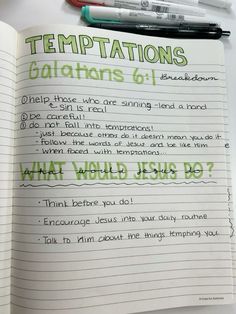 TEMPTATIONS
Galatians 6:1 Breakdown
① help those who are sinning - lend a hand
↳ sin is real
② be careful!
③ do not fall into temptations!
· just because others do it doesn't mean you do it
· follow the words of Jesus and be like Him
· when faced with temptations...
WHAT WOULD JESUS DO?
what would jesus do
· Think before you do!
· Encourage Jesus into your daily routine
· Talk to Him about the things tempting you